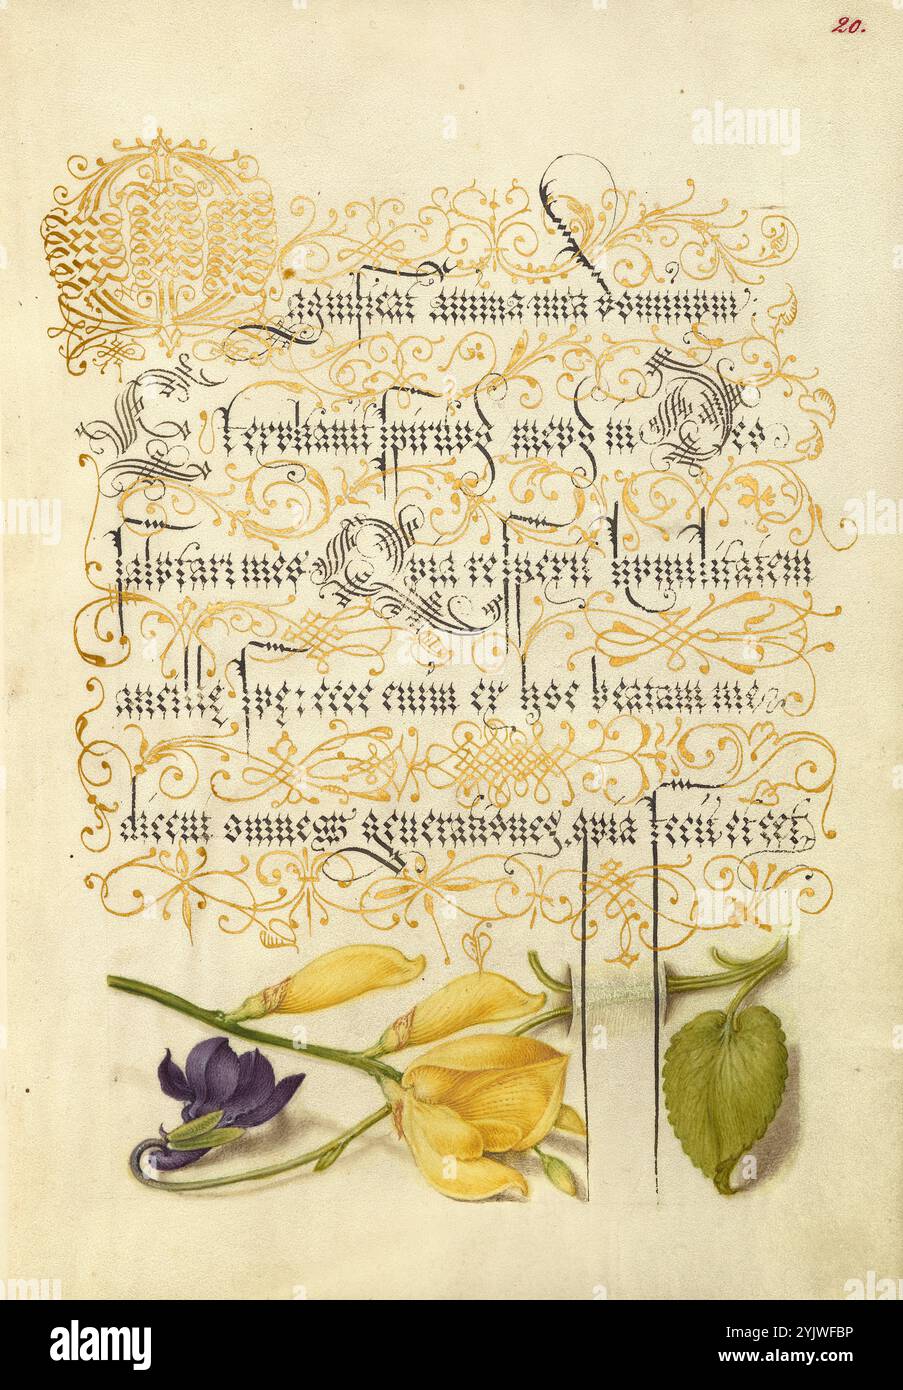 20.
Magnificat anima mea dominum:
Et exultavit spiritus meus in Deo
salutari meo: Quia respexit humilitatem
ancillę suę: ecce enim ex hoc beatam me
dicent omnes generationes, quia fecit et cet.
alamy
Image ID: 2YJWFBP
www.alamy.com